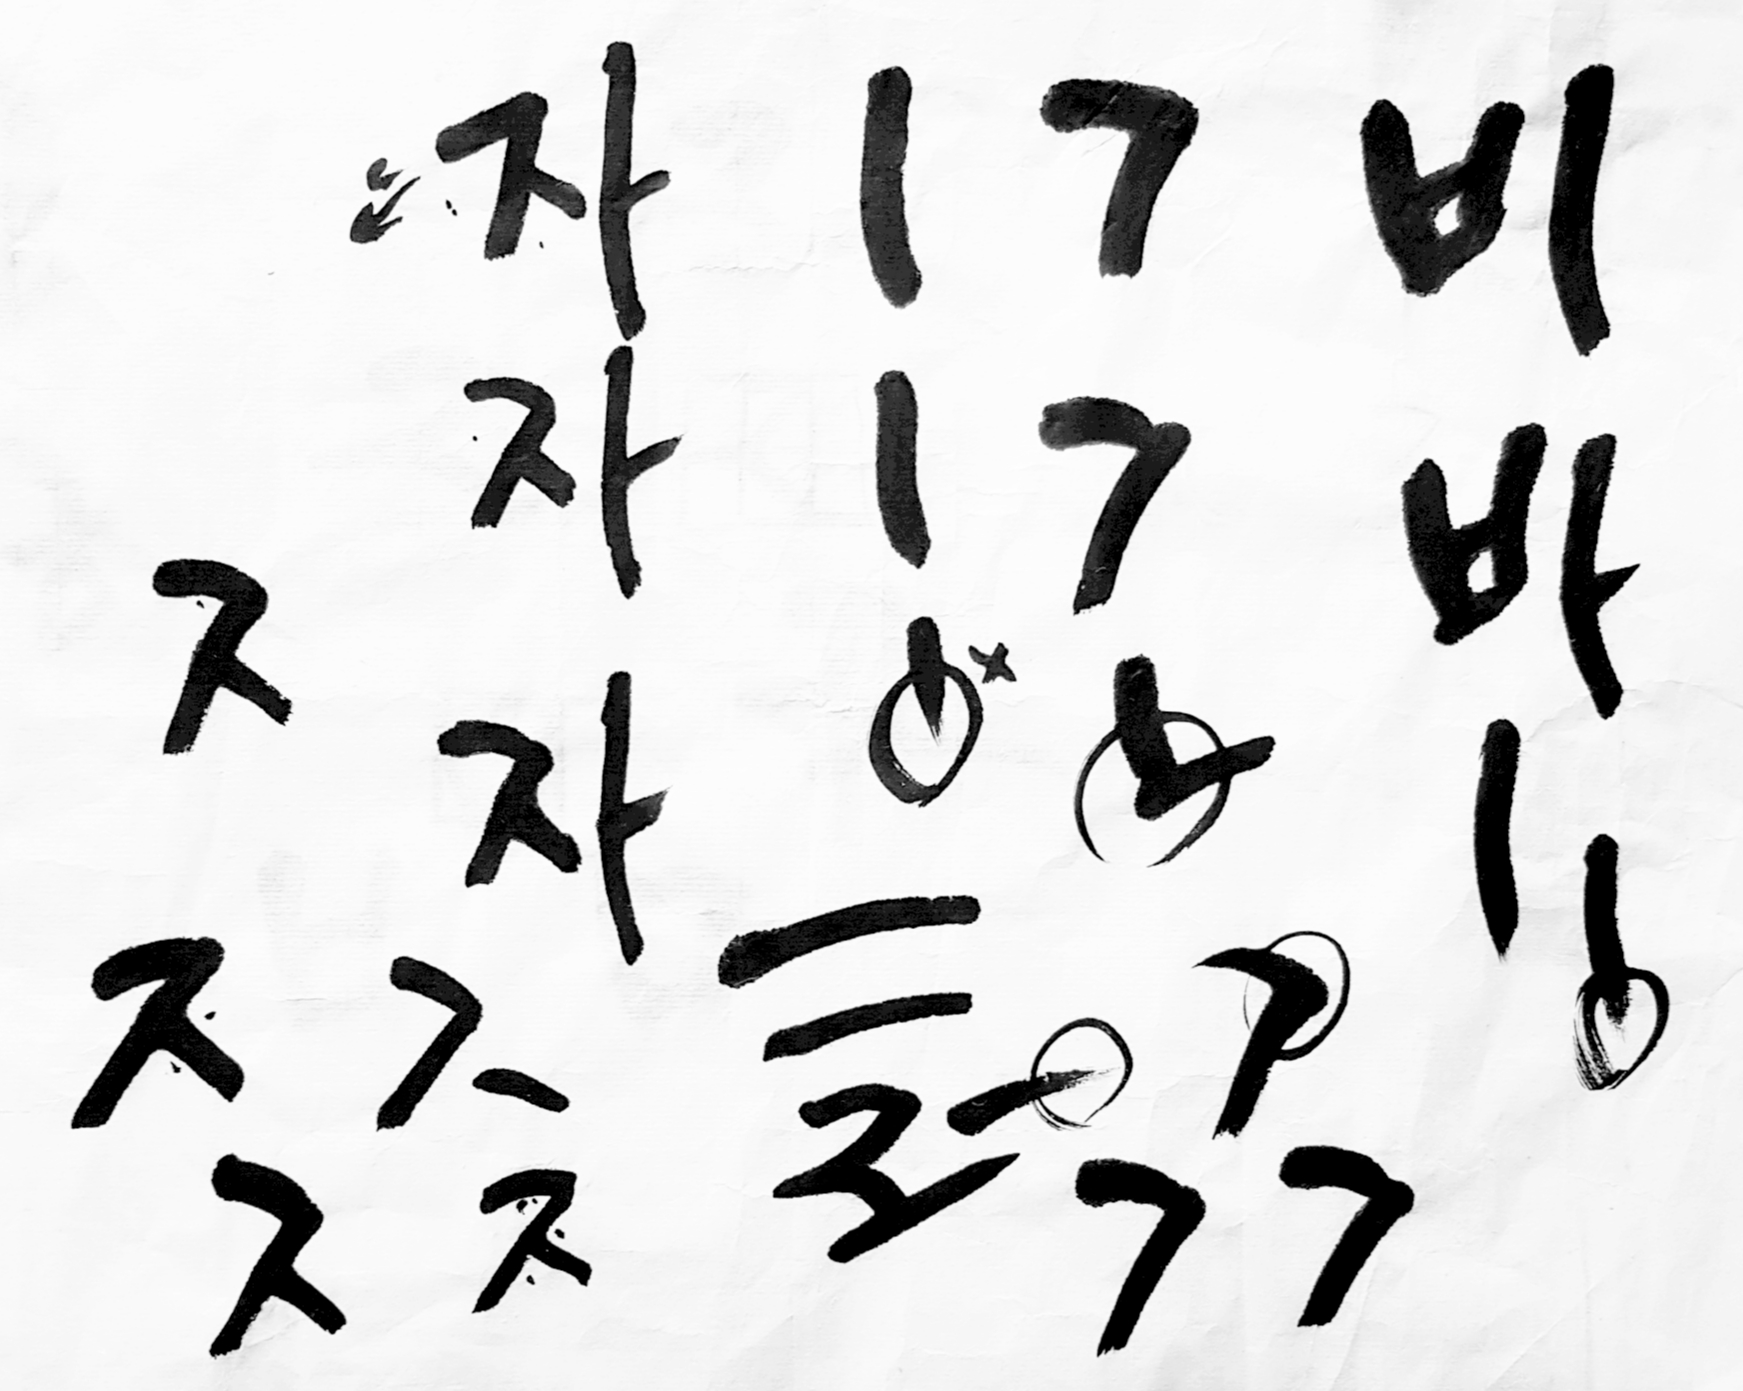 자 ㅣ ㄱ 비
자 ㅣ ㄱ 바
ㅈ 자 ㅣ ㄴ ㅣ
ㅈ ㅈ ㅡ ㄱ ㅣ
ㅡ
ㄹ ㅡ
ㅈ ㅈ ㄱ ㄱ